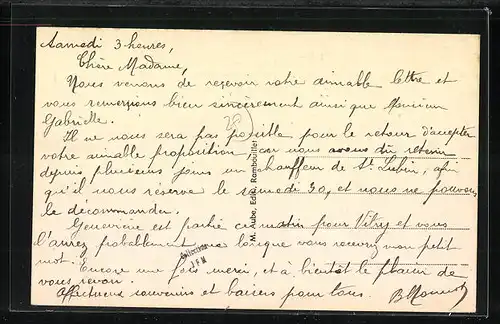 Samedi 3 heures,
Chère Madame,
Nous venons de recevoir votre aimable lettre et
vous remercions bien sincèrement ainsi que Monsieur
Gabrielle.
Il ne nous sera pas possible pour le retour d'accepter
votre aimable proposition, car nous avons dû retenir
depuis plusieurs jours un chauffeur de St Lubin, afin
qu'il nous réserve le samedi 30, et nous ne pouvons
le décommander.
Geneviève est partie ce matin pour Vitry et vous
l'aurez probablement vue lorsque vous recevrez mon petit
mot. Encore une fois merci, et à bientôt le plaisir de
vous revoir.
Affectueux souvenirs et baisers pour tous. B
M. Aube, Edit., Rambouillet
Collection
J F M